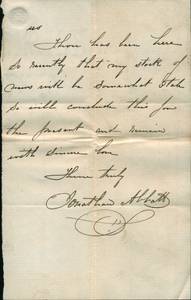 us
Thou has been here
so recently that my stock of
news will be somewhat stale
so will conclude this for
the present and remain
with sincere love
Thine truly
Jonathan Abbott